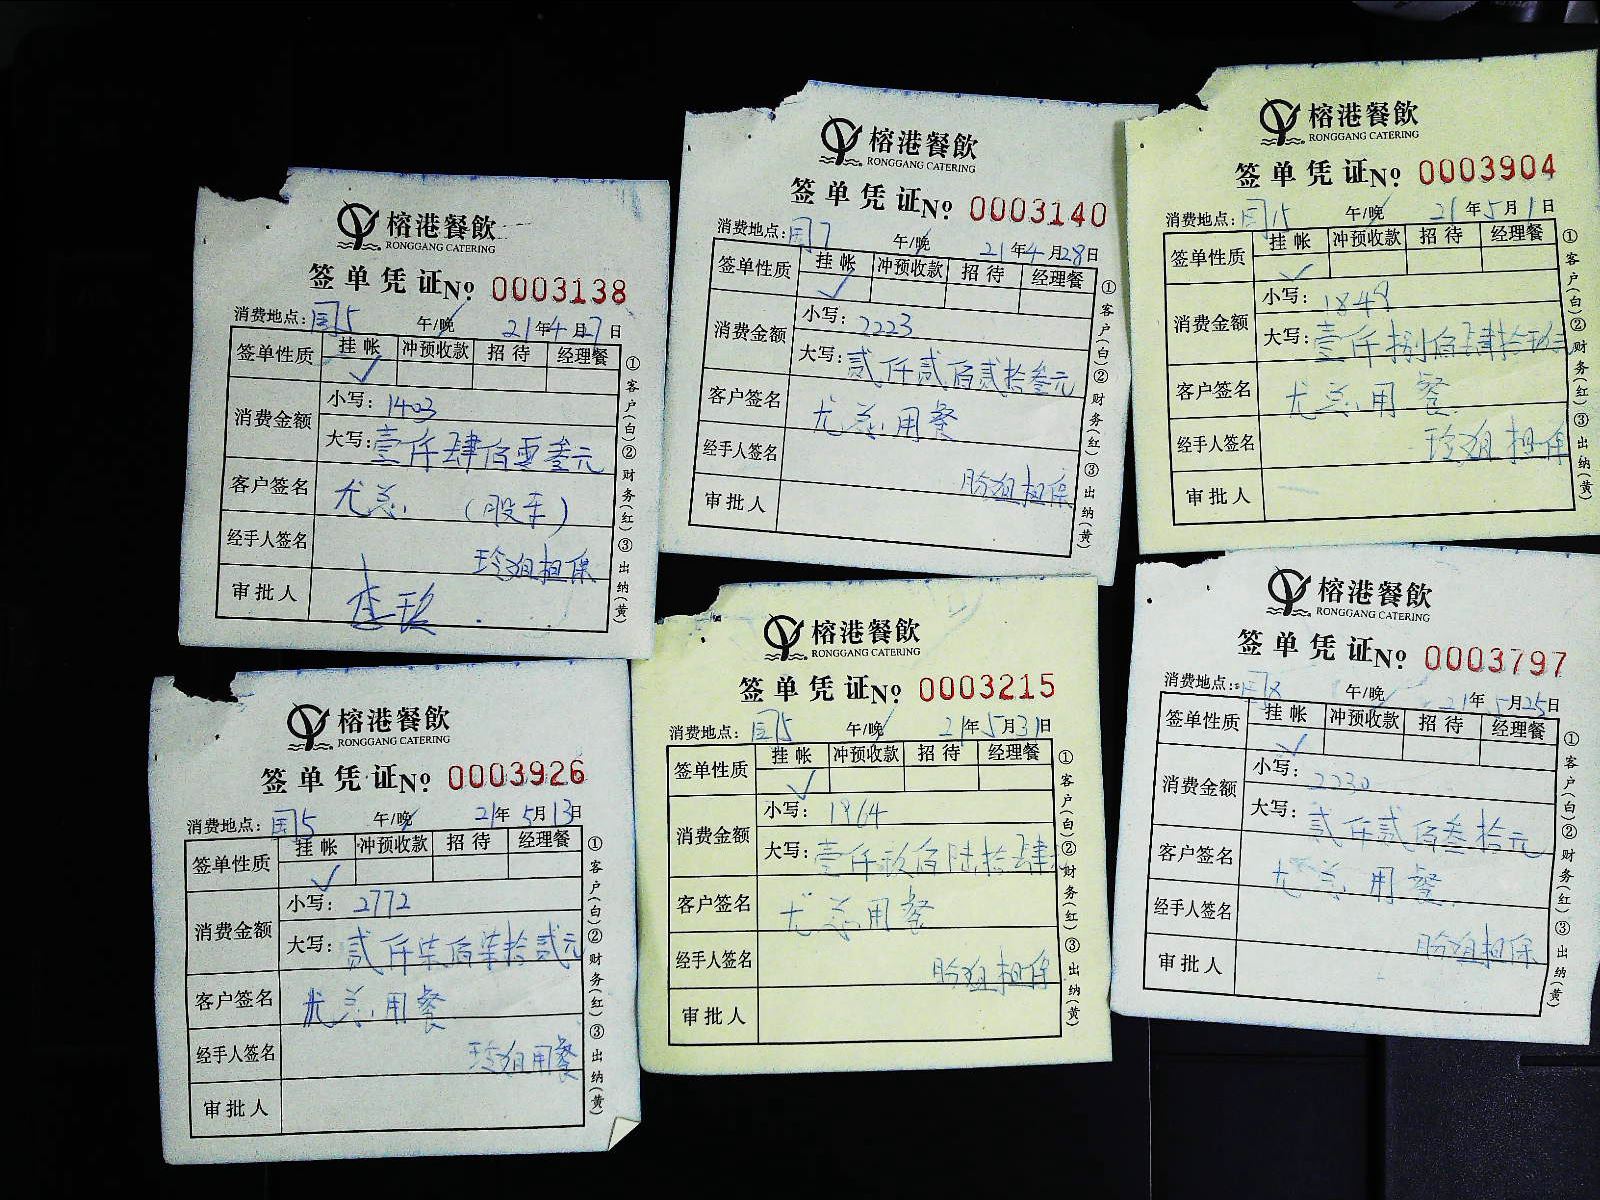 榕港餐飲
RONGGANG CATERING
签单凭证 No. 0003138
消费地点: 国5 午/晚 21年4月27日
签单性质 挂帐 冲预收款 招待 经理餐
✓
消费金额 小写: 1403
大写: 壹仟肆佰零叁元
客户签名 尤总 (股东)
经手人签名 玲姐担保
审批人
①客户(白)②财务(红)③出纳(黄)
榕港餐飲
RONGGANG CATERING
签单凭证 No. 0003140
消费地点: 国7 午/晚 21年4月28日
签单性质 挂帐 冲预收款 招待 经理餐
✓
消费金额 小写: 2223
大写: 贰仟贰佰贰拾叁元
客户签名 尤总用餐
经手人签名 盼姐担保
审批人
①客户(白)②财务(红)③出纳(黄)
榕港餐飲
RONGGANG CATERING
签单凭证 No. 0003904
消费地点: 国15 午/晚 21年5月1日
签单性质 挂帐 冲预收款 招待 经理餐
✓
消费金额 小写: 1849
大写: 壹仟捌佰肆拾玖元
客户签名 尤总用餐
经手人签名 玲姐担保
审批人
①客户(白)②财务(红)③出纳(黄)
榕港餐飲
RONGGANG CATERING
签单凭证 No. 0003926
消费地点: 国15 午/晚 21年5月13日
签单性质 挂帐 冲预收款 招待 经理餐
✓
消费金额 小写: 2772
大写: 贰仟柒佰柒拾贰元
客户签名 尤总用餐
经手人签名 玲姐用餐
审批人
①客户(白)②财务(红)③出纳(黄)
榕港餐飲
RONGGANG CATERING
签单凭证 No. 0003215
消费地点: 国15 午/晚 21年5月31日
签单性质 挂帐 冲预收款 招待 经理餐
✓
消费金额 小写: 1964
大写: 壹仟玖佰陆拾肆
客户签名 尤总用餐
经手人签名 盼姐担保
审批人
①客户(白)②财务(红)③出纳(黄)
榕港餐飲
RONGGANG CATERING
签单凭证 No. 0003797
消费地点: 国8 午/晚 21年5月25日
签单性质 挂帐 冲预收款 招待 经理餐
✓
消费金额 小写: 2230
大写: 贰仟贰佰叁拾元
客户签名 尤总用餐
经手人签名 盼姐担保
审批人
①客户(白)②财务(红)③出纳(黄)